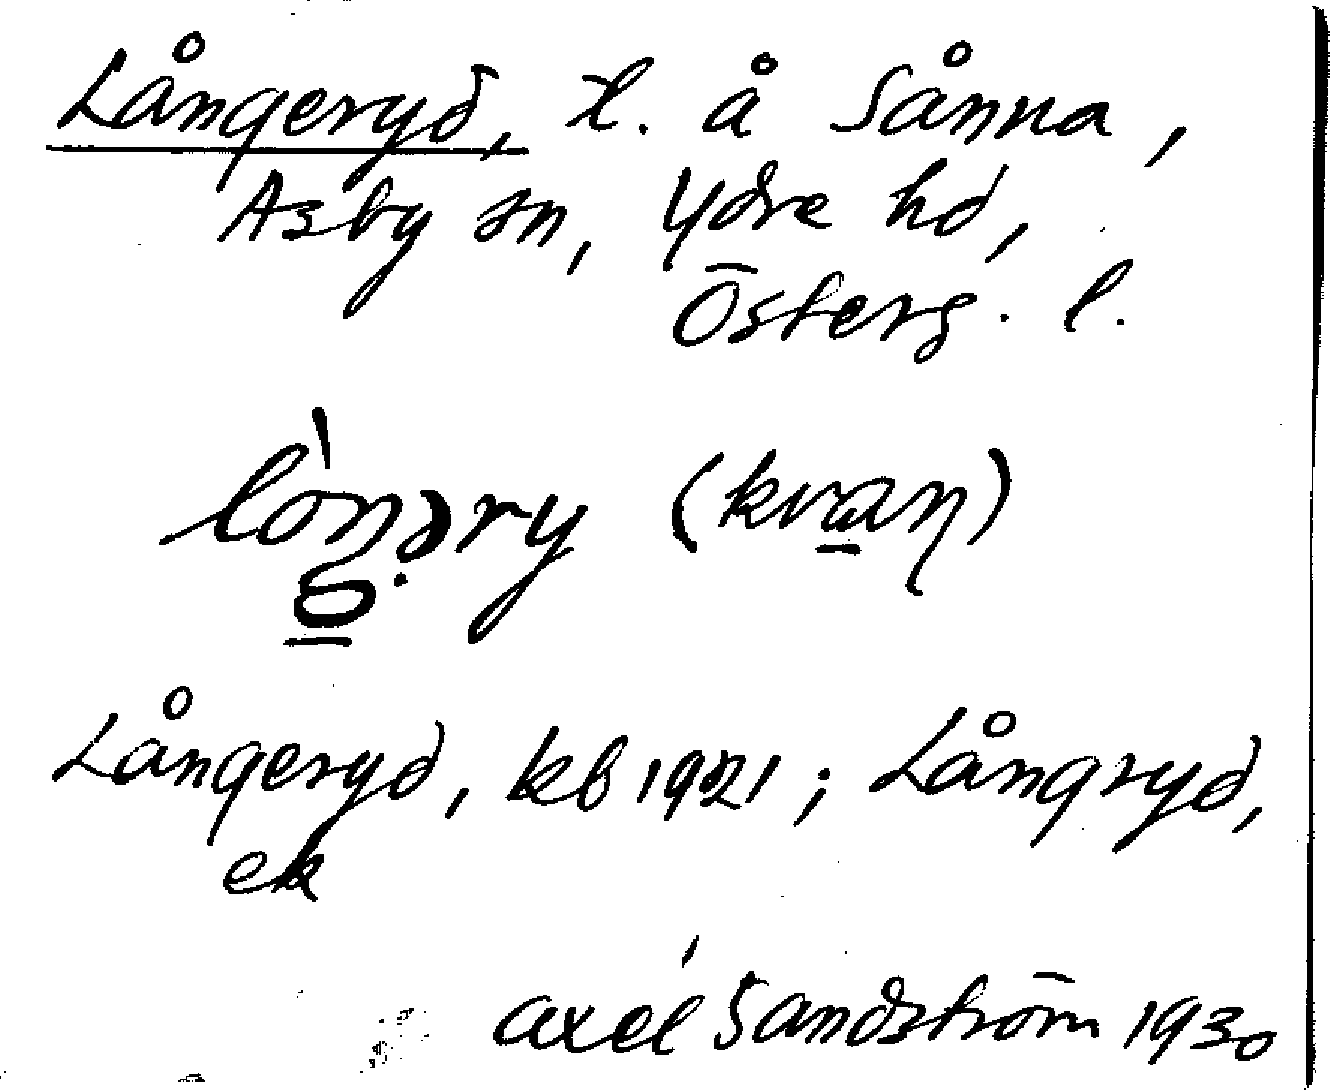 Långeryd, l. å Sånna,
Asby sn, Ydre hd,
Österg. l.
lòŋəry (kvaŋ)
Långeryd, kb 1921; Långryd,
ek
Axel Sandström 1930